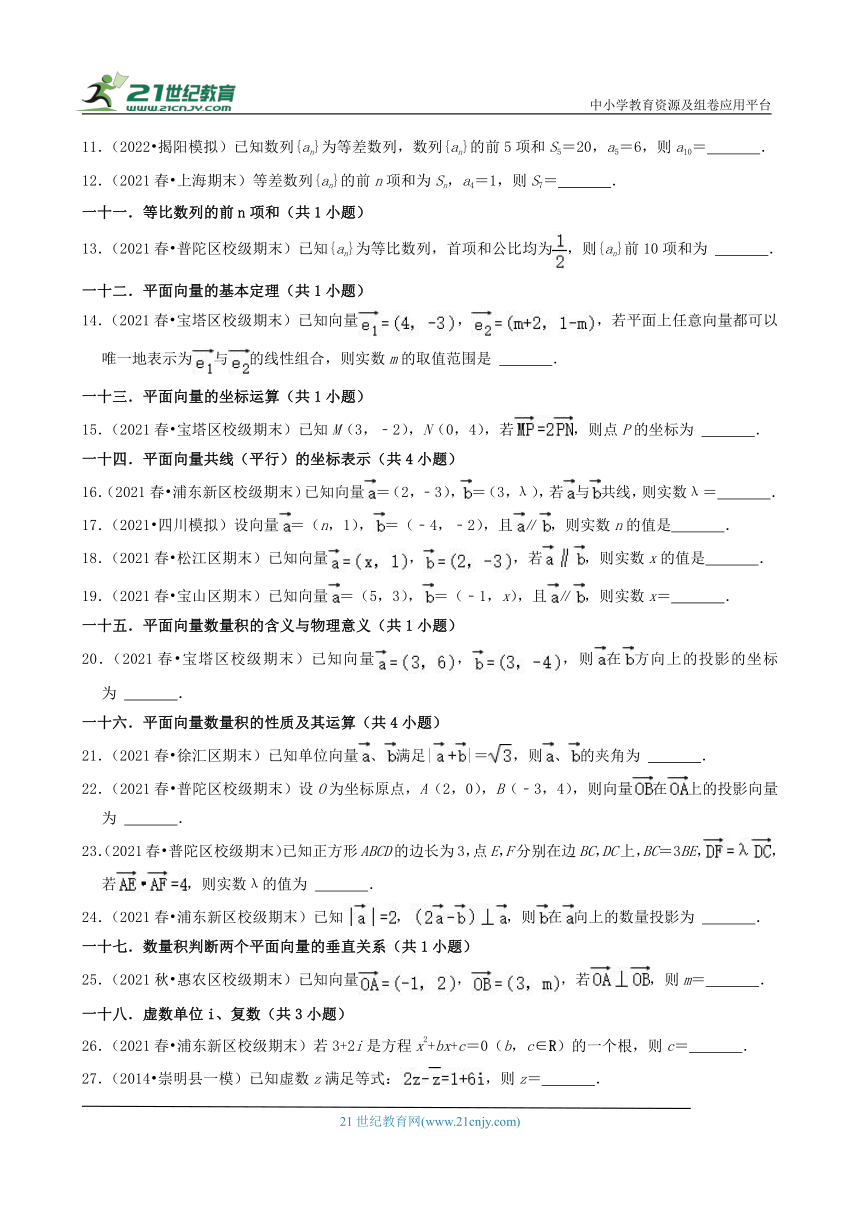 21世纪教育
WWW.21CNJY.COM
中小学教育资源及组卷应用平台
11.（2022•揭阳模拟）已知数列{aₙ}为等差数列，数列{aₙ}的前5项和S₅＝20，a₅＝6，则a₁₀＝_______．
12.（2021春•上海期末）等差数列{aₙ}的前n项和为Sₙ，a₄＝1，则S₇＝_______．
一十一．等比数列的前n项和（共1小题）
13.（2021春•普陀区校级期末）已知{aₙ}为等比数列，首项和公比均为1/2，则{aₙ}前10项和为 _______．
一十二．平面向量的基本定理（共1小题）
14.（2021春•宝塔区校级期末）已知向量e₁→=(4，-3)，e₂→=(m+2，1-m)，若平面上任意向量都可以
唯一地表示为e₁→与e₂→的线性组合，则实数m的取值范围是 _______．
一十三．平面向量的坐标运算（共1小题）
15.（2021春•宝塔区校级期末）已知M（3，﹣2），N（0，4），若MP→=2PN→，则点P的坐标为 _______．
一十四．平面向量共线（平行）的坐标表示（共4小题）
16.（2021春•浦东新区校级期末）已知向量a→＝（2，﹣3），b→＝（3，λ），若a→与b→共线，则实数λ＝_______．
17.（2021•四川模拟）设向量a→＝（n，1），b→＝（﹣4，﹣2），且a→∥b→，则实数n的值是_______．
18.（2021春•松江区期末）已知向量a→=(x，1)，b→=(2，-3)，若a→∥b→，则实数x的值是_______．
19.（2021春•宝山区期末）已知向量a→＝（5，3），b→＝（﹣1，x），且a→∥b→，则实数x＝_______．
一十五．平面向量数量积的含义与物理意义（共1小题）
20.（2021春•宝塔区校级期末）已知向量a→=(3，6)，b→=(3，-4)，则a→在b→方向上的投影的坐标
为 _______．
一十六．平面向量数量积的性质及其运算（共4小题）
21.（2021春•徐汇区期末）已知单位向量a→、b→满足|a→+b→|＝√3，则a→、b→的夹角为 _______．
22.（2021春•普陀区校级期末）设O为坐标原点，A（2，0），B（﹣3，4），则向量OB→在OA→上的投影向量
为 _______．
23.（2021春•普陀区校级期末）已知正方形ABCD的边长为3，点E，F分别在边BC，DC上，BC＝3BE，DF→=λDC→，
若AE→•AF→=4，则实数λ的值为 _______．
24.（2021春•浦东新区校级期末）已知|a→|=2，(2a→-b→)⊥a→，则b→在a→向上的数量投影为 _______．
一十七．数量积判断两个平面向量的垂直关系（共1小题）
25.（2021秋•惠农区校级期末）已知向量OA→=(-1，2)，OB→=(3，m)，若OA→⊥OB→，则m＝_______．
一十八．虚数单位i、复数（共3小题）
26.（2021春•浦东新区校级期末）若3+2i是方程x²+bx+c＝0（b，c∈R）的一个根，则c＝_______．
27.（2014•崇明县一模）已知虚数z满足等式：2z-z̄=1+6i，则z＝_______．
21世纪教育网(www.21cnjy.com)